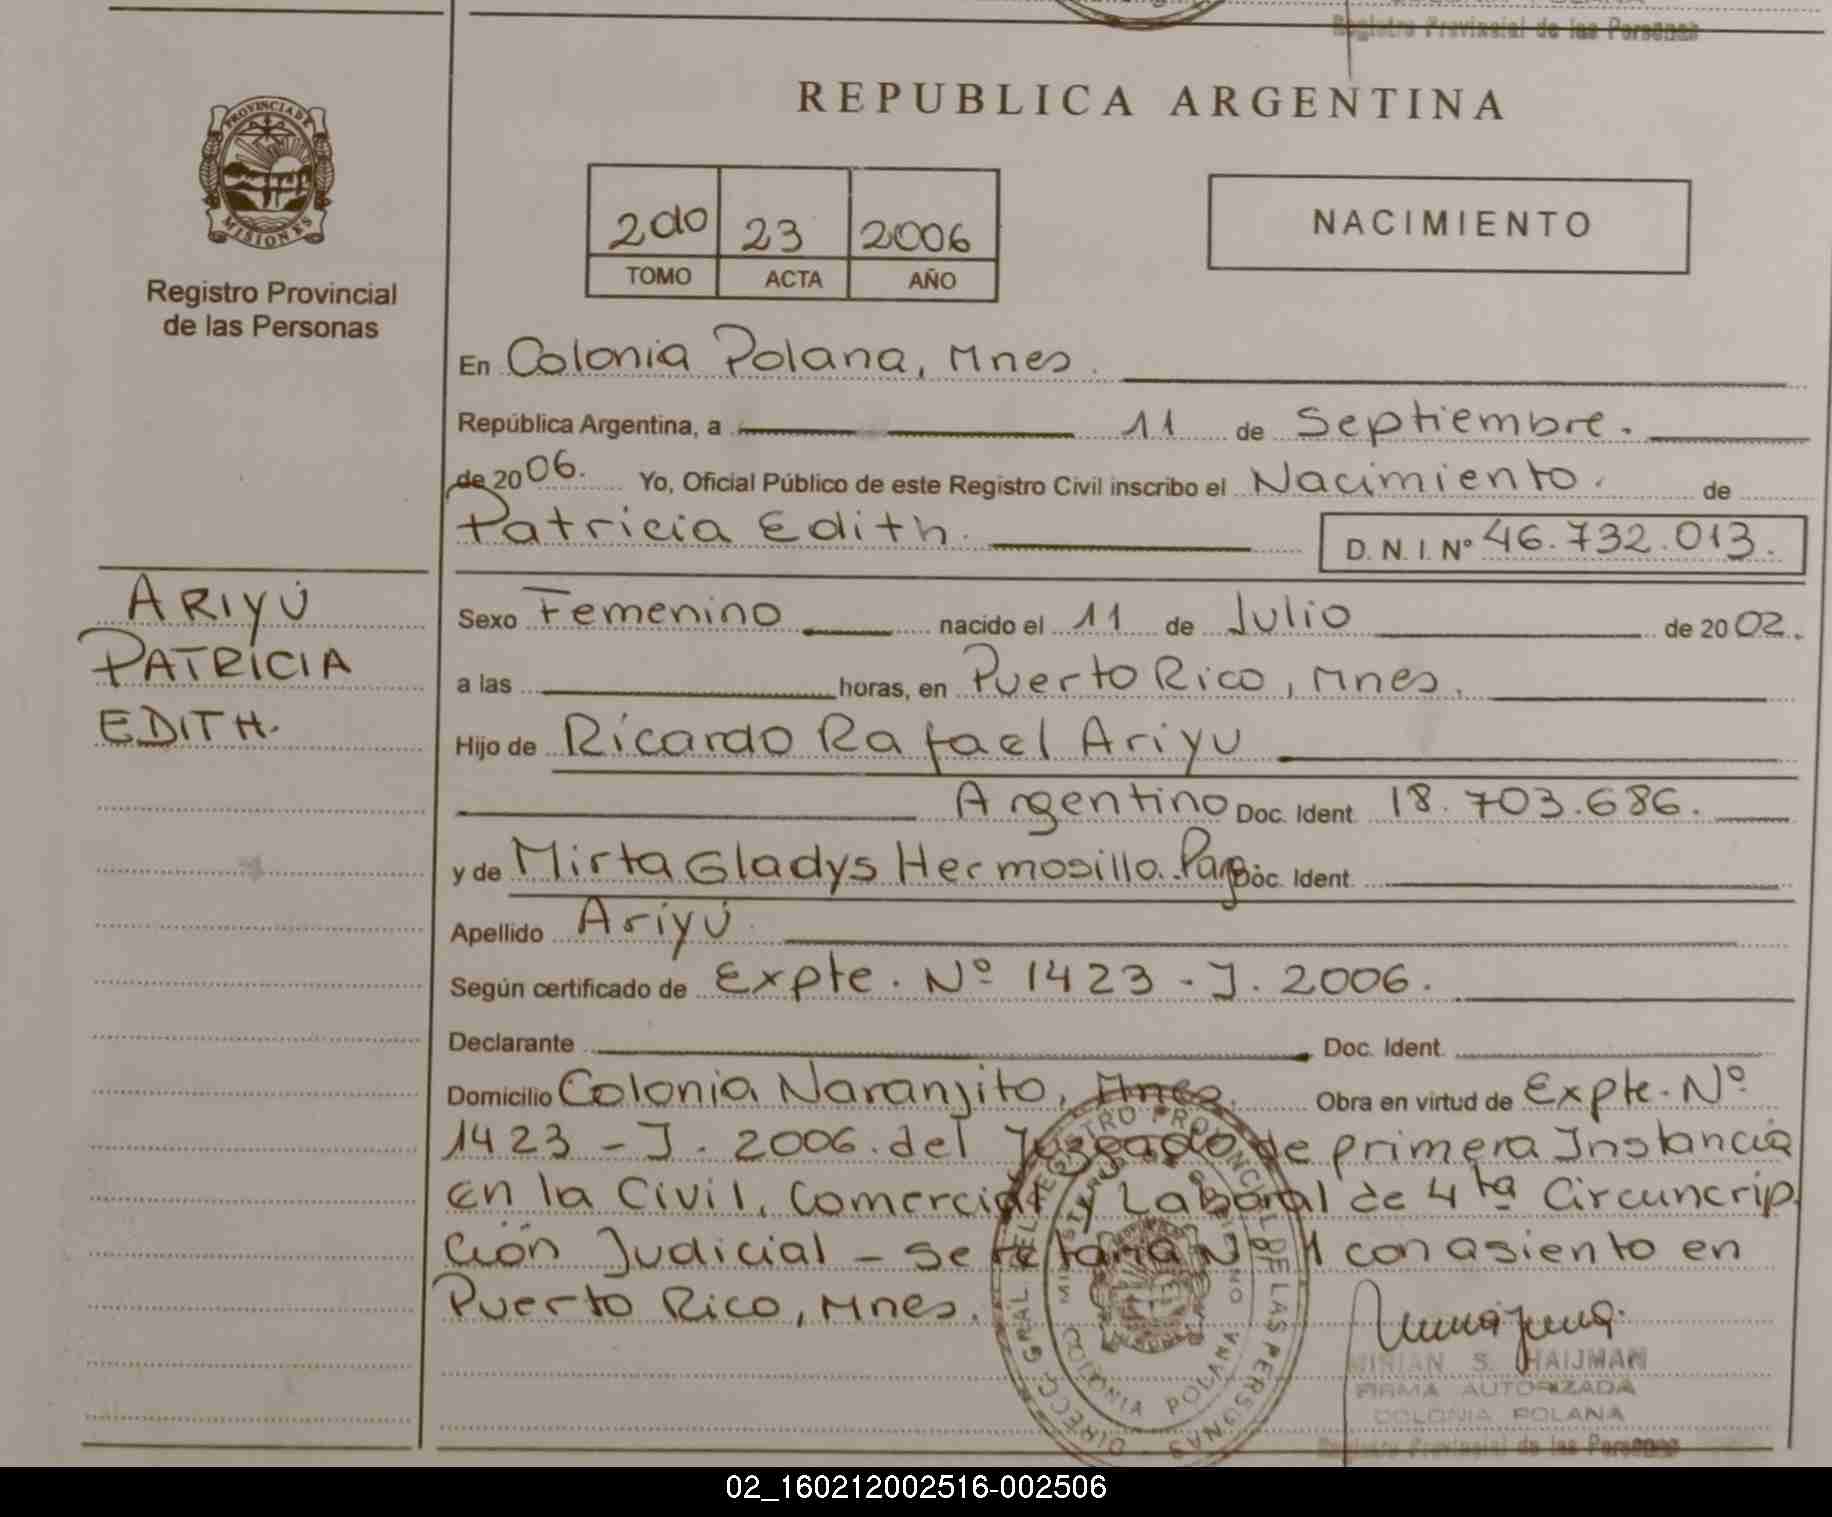 Registro Provincial de las Personas
PROVINCIA DE
MISIONES
Registro Provincial
de las Personas
REPUBLICA ARGENTINA
2do 23 2006
TOMO ACTA AÑO
NACIMIENTO
En Colonia Polana, Mnes.
República Argentina, a 11 de Septiembre.
de 2006. Yo, Oficial Público de este Registro Civil inscribo el Nacimiento. de
Patricia Edith. D. N. I. Nº 46.732.013.
ARIYÚ
PATRICIA
EDITH.
Sexo Femenino nacido el 11 de Julio de 2002.
a las horas, en Puerto Rico, Mnes.
Hijo de Ricardo Rafael Ariyu
Argentino Doc. Ident. 18.703.686.
y de Mirta Gladys Hermosilla. Doc. Ident.
Apellido Ariyú
Según certificado de Expte. Nº 1423 - J. 2006.
Declarante Doc. Ident.
Domicilio Colonia Naranjito, Mnes. Obra en virtud de Expte. Nº
1423 - J. 2006. del Juzgado de primera Instancia
en la Civil, Comercial y Laboral de 4ta Circuncrip.
ción Judicial - Secretaria Nº 1 con asiento en
Puerto Rico, Mnes.
DIRECC. GRAL. DEL REGISTRO PROVINCIAL DE LAS PERSONAS
MINISTERIO DE GOBIERNO
COLONIA POLANA
MIRIAN S. HAIJMAN
FIRMA AUTORIZADA
COLONIA POLANA
Registro Provincial de las Personas
02_160212002516-002506